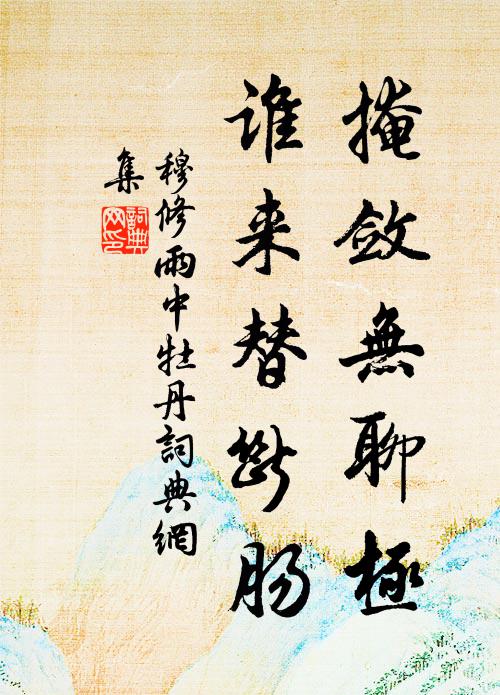 掩敛無聊極
谁来替断肠
穆修雨中牡丹詞典網
集
詞典网印